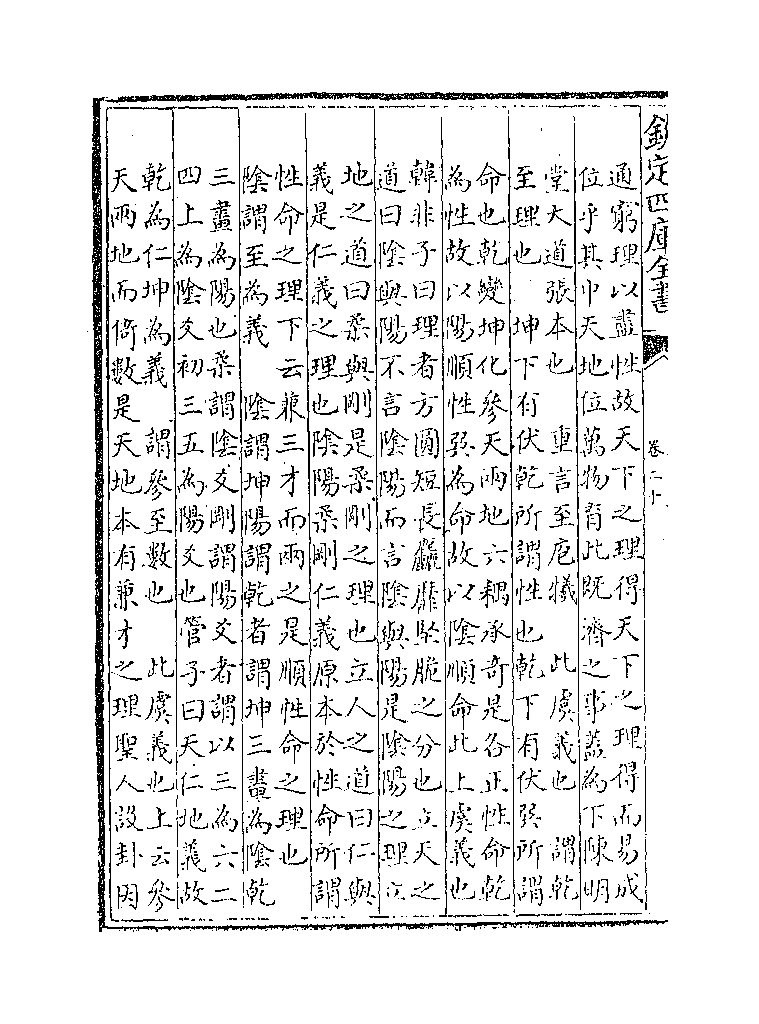 欽定四庫全書
卷二十
通窮理以盡性故天下之理得天下之理得而易成
位乎其中天地位萬物育此既濟之事葢為下陳明
堂大道張本也　重言至庖犧　此虞義也　謂乾
至理也　坤下有伏乾所謂性也乾下有伏巽所謂
命也乾變坤化參天兩地六耦承奇是各正性命乾
為性故以陽順性巽為命故以陰順命此上虞義也
韓非子曰理者方圓短長麤靡堅脆之分也立天之
道曰陰與陽不言陰陽而言陰與陽是陰陽之理立
地之道曰柔與剛是柔剛之理也立人之道曰仁與
義是仁義之理也陰陽柔剛仁義原本於性命所謂
性命之理下云兼三才而兩之是順性命之理也
陰謂至為義　陰謂坤陽謂乾者謂坤三畫為陰乾
三畫為陽也柔謂陰爻剛謂陽爻者謂以三為六二
四上為陰爻初三五為陽爻也管子曰天仁地義故
乾為仁坤為義　謂參至數也　此虞義也上云參
天兩地而倚數是天地本有兼才之理聖人設卦因